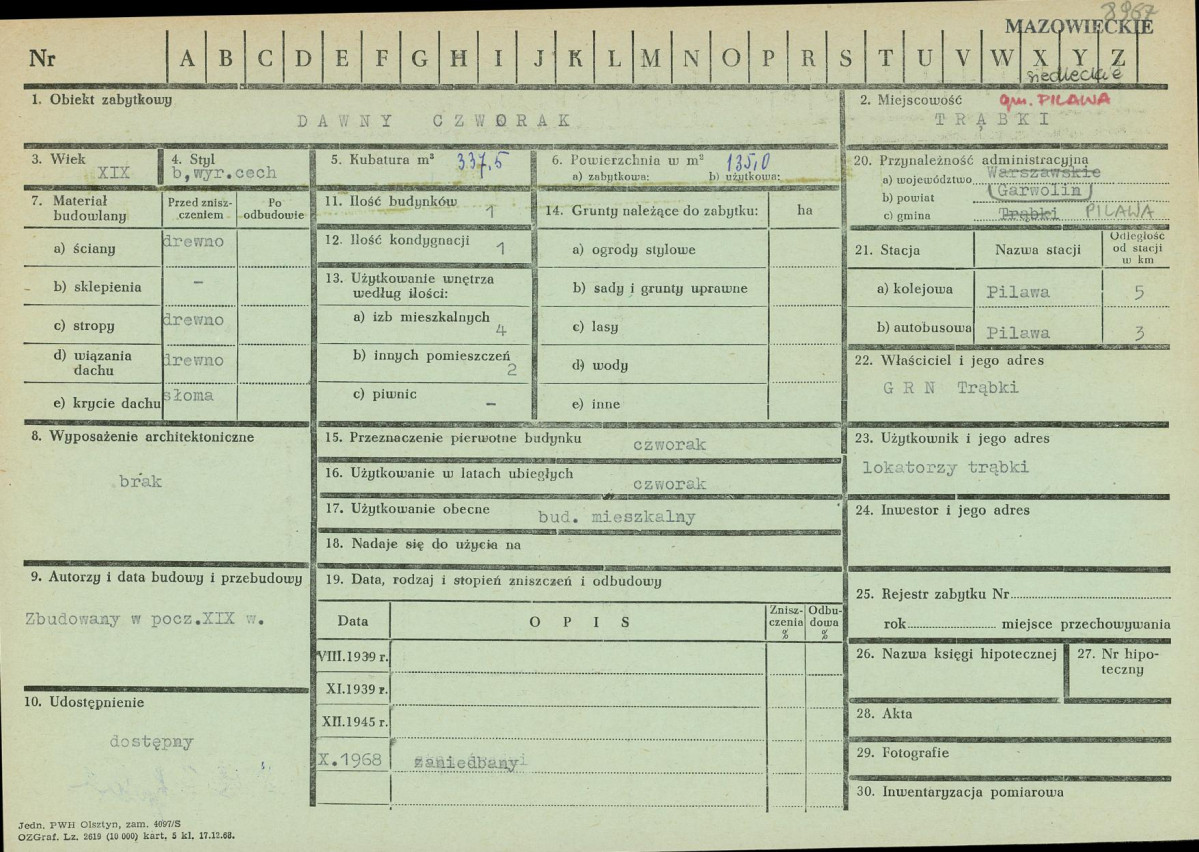 8967
MAZOWIECKIE
Nr A B C D E F G H I J K L M N O P R S T U V W X Y Z
siedleckie
1. Obiekt zabytkowy
DAWNY CZWORAK
2. Miejscowość gm. PILAWA
TRĄBKI
3. Wiek
XIX
4. Styl
b,wyr.cech
5. Kubatura m³ 337,5
6. Powierzchnia w m² 135,0
a) zabytkowa: b) użytkowa:
7. Materiał budowlany
Przed znisz-
czeniem
Po
odbudowie
a) ściany drewno
b) sklepienia –
c) stropy drewno
d) wiązania
dachu drewno
e) krycie dachu słoma
8. Wyposażenie architektoniczne
brak
9. Autorzy i data budowy i przebudowy
Zbudowany w pocz.XIX w.
10. Udostępnienie
dostępny
11. Ilość budynków 1
12. Ilość kondygnacji 1
13. Użytkowanie wnętrza
według ilości:
a) izb mieszkalnych 4
b) innych pomieszczeń 2
c) piwnic –
14. Grunty należące do zabytku: ha
a) ogrody stylowe
b) sady i grunty uprawne
c) lasy
d) wody
e) inne
15. Przeznaczenie pierwotne budynku czworak
16. Użytkowanie w latach ubiegłych
czworak
17. Użytkowanie obecne bud. mieszkalny
18. Nadaje się do użycia na
19. Data, rodzaj i stopień zniszczeń i odbudowy
Data OPIS Znisz-
czenia
%
Odbu-
dowa
%
VIII.1939 r.
XI.1939 r.
XII.1945 r.
X.1968 zaniedbany
20. Przynależność administracyjna
a) województwo Warszawskie
b) powiat (Garwolin)
c) gmina Trąbki PILAWA
21. Stacja Nazwa stacji Odległość
od stacji
w km
a) kolejowa Pilawa 5
b) autobusowa Pilawa 3
22. Właściciel i jego adres
G R N Trąbki
23. Użytkownik i jego adres
lokatorzy trąbki
24. Inwestor i jego adres
25. Rejestr zabytku Nr
rok miejsce przechowywania
26. Nazwa księgi hipotecznej
27. Nr hipo-
teczny
28. Akta
29. Fotografie
30. Inwentaryzacja pomiarowa
Jedn. PWH Olsztyn, zam. 4097/S
OZGraf. Lz. 2619 (10 000) kart. 5 kl. 17.12.68.